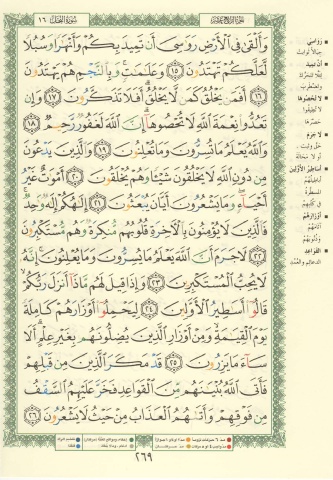 الجزء الرابع عشر
سورة النحل ١٦
وَأَلْقَىٰ فِي ٱلْأَرْضِ رَوَٰسِيَ أَن تَمِيدَ بِكُمْ وَأَنْهَٰرًا وَسُبُلًا
لَّعَلَّكُمْ تَهْتَدُونَ ١٥ وَعَلَٰمَٰتٍ وَبِٱلنَّجْمِ هُمْ يَهْتَدُونَ
١٦ أَفَمَن يَخْلُقُ كَمَن لَّا يَخْلُقُ أَفَلَا تَذَكَّرُونَ ١٧ وَإِن
تَعُدُّوا۟ نِعْمَةَ ٱللَّهِ لَا تُحْصُوهَآ إِنَّ ٱللَّهَ لَغَفُورٌ رَّحِيمٌ ١٨
وَٱللَّهُ يَعْلَمُ مَا تُسِرُّونَ وَمَا تُعْلِنُونَ ١٩ وَٱلَّذِينَ يَدْعُونَ
مِن دُونِ ٱللَّهِ لَا يَخْلُقُونَ شَيْـًٔا وَهُمْ يُخْلَقُونَ ٢٠ أَمْوَٰتٌ غَيْرُ
أَحْيَآءٍ وَمَا يَشْعُرُونَ أَيَّانَ يُبْعَثُونَ ٢١ إِلَٰهُكُمْ إِلَٰهٌ وَٰحِدٌ
فَٱلَّذِينَ لَا يُؤْمِنُونَ بِٱلْـَٔاخِرَةِ قُلُوبُهُم مُّنكِرَةٌ وَهُم مُّسْتَكْبِرُونَ
٢٢ لَا جَرَمَ أَنَّ ٱللَّهَ يَعْلَمُ مَا يُسِرُّونَ وَمَا يُعْلِنُونَ إِنَّهُۥ
لَا يُحِبُّ ٱلْمُسْتَكْبِرِينَ ٢٣ وَإِذَا قِيلَ لَهُم مَّاذَآ أَنزَلَ رَبُّكُمْ
قَالُوٓا۟ أَسَٰطِيرُ ٱلْأَوَّلِينَ ٢٤ لِيَحْمِلُوٓا۟ أَوْزَارَهُمْ كَامِلَةً
يَوْمَ ٱلْقِيَٰمَةِ وَمِنْ أَوْزَارِ ٱلَّذِينَ يُضِلُّونَهُم بِغَيْرِ عِلْمٍ أَلَا
سَآءَ مَا يَزِرُونَ ٢٥ قَدْ مَكَرَ ٱلَّذِينَ مِن قَبْلِهِمْ
فَأَتَى ٱللَّهُ بُنْيَٰنَهُم مِّنَ ٱلْقَوَاعِدِ فَخَرَّ عَلَيْهِمُ ٱلسَّقْفُ
مِن فَوْقِهِمْ وَأَتَىٰهُمُ ٱلْعَذَابُ مِنْ حَيْثُ لَا يَشْعُرُونَ ٢٦
رواسي
جبالاً ثوابت
أن تميد
لئلا تتحرك
وتضطرب
لا تحصوها
لا تطيقوا
حصرها
لا جرم
حق وثبت
أو لا محالة
أساطير الأولين
أباطيلهم
المسطرة
في كتبهم
أوزارهم
آثامهم
وذنوبهم
القواعد
الدعائم والعمد
٢٦٩